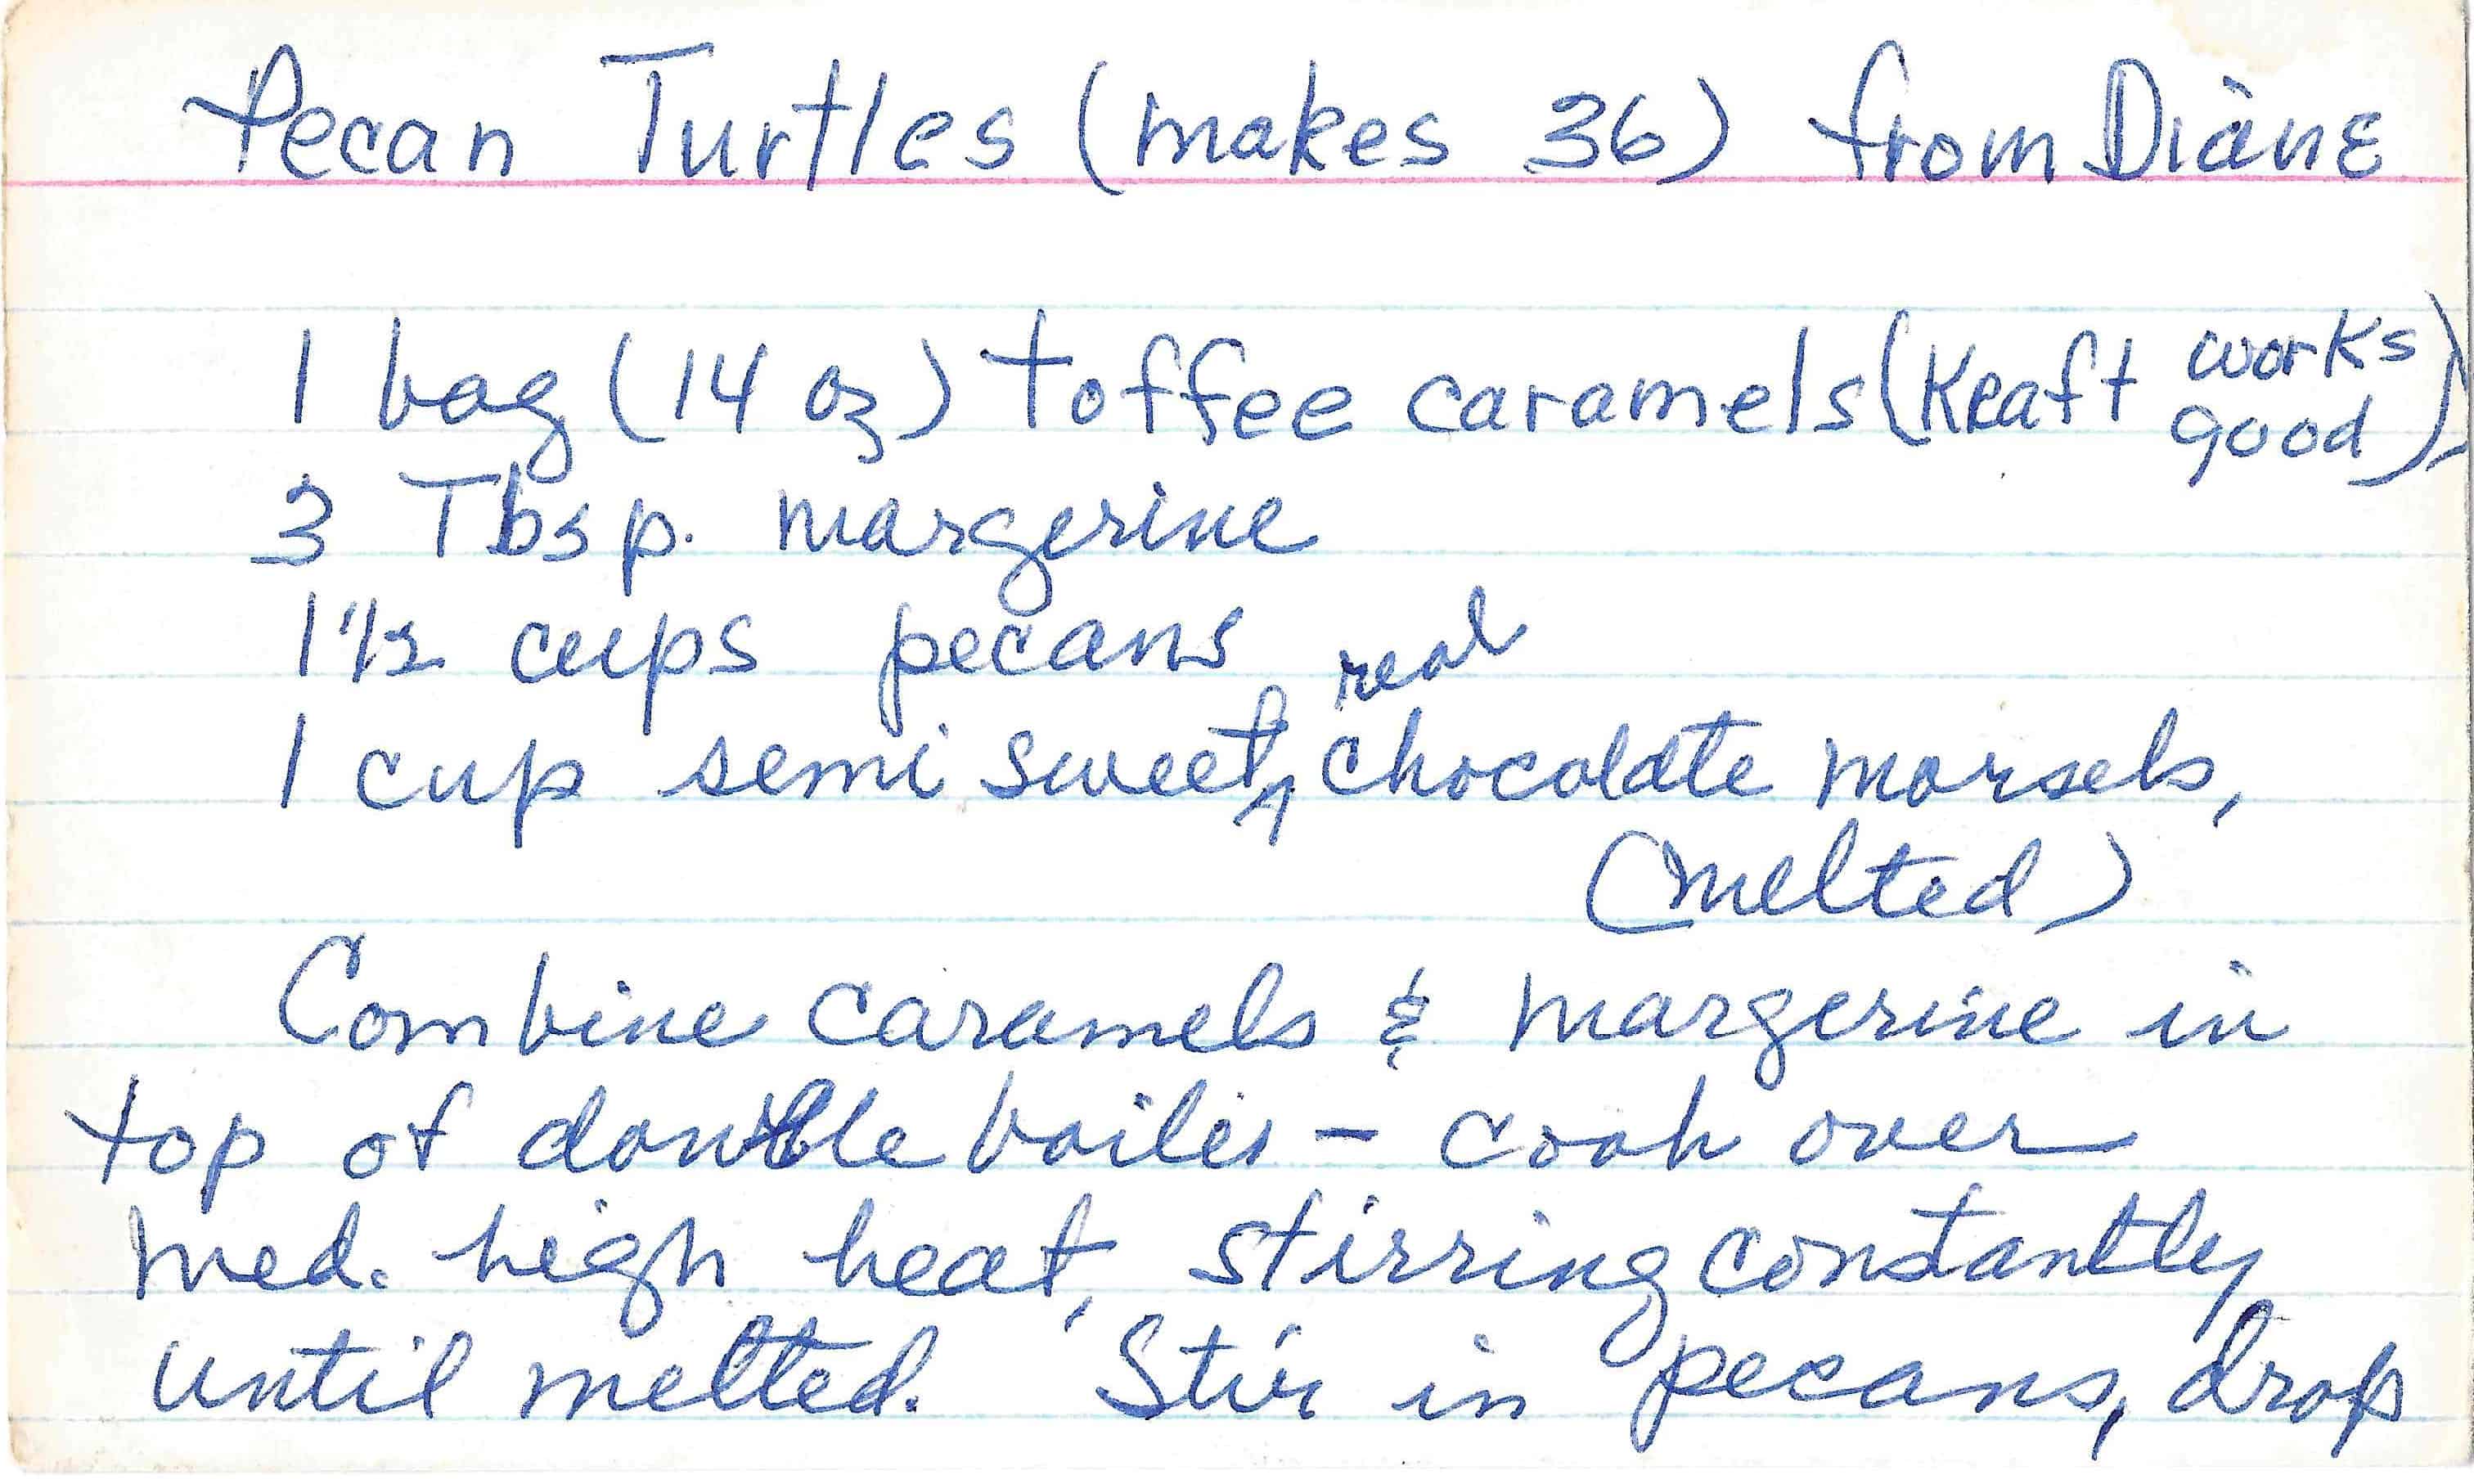 Pecan Turtles (makes 36) from Diane
1 bag (14 oz) toffee caramels (Kraft works good)
3 Tbsp. margerine
1 1/2 cups pecans
1 cup semi sweet real chocolate morsels,
(melted)
Combine caramels & margerine in
top of double boiler - cook over
med. high heat, stirring constantly
until melted. Stir in pecans, drop